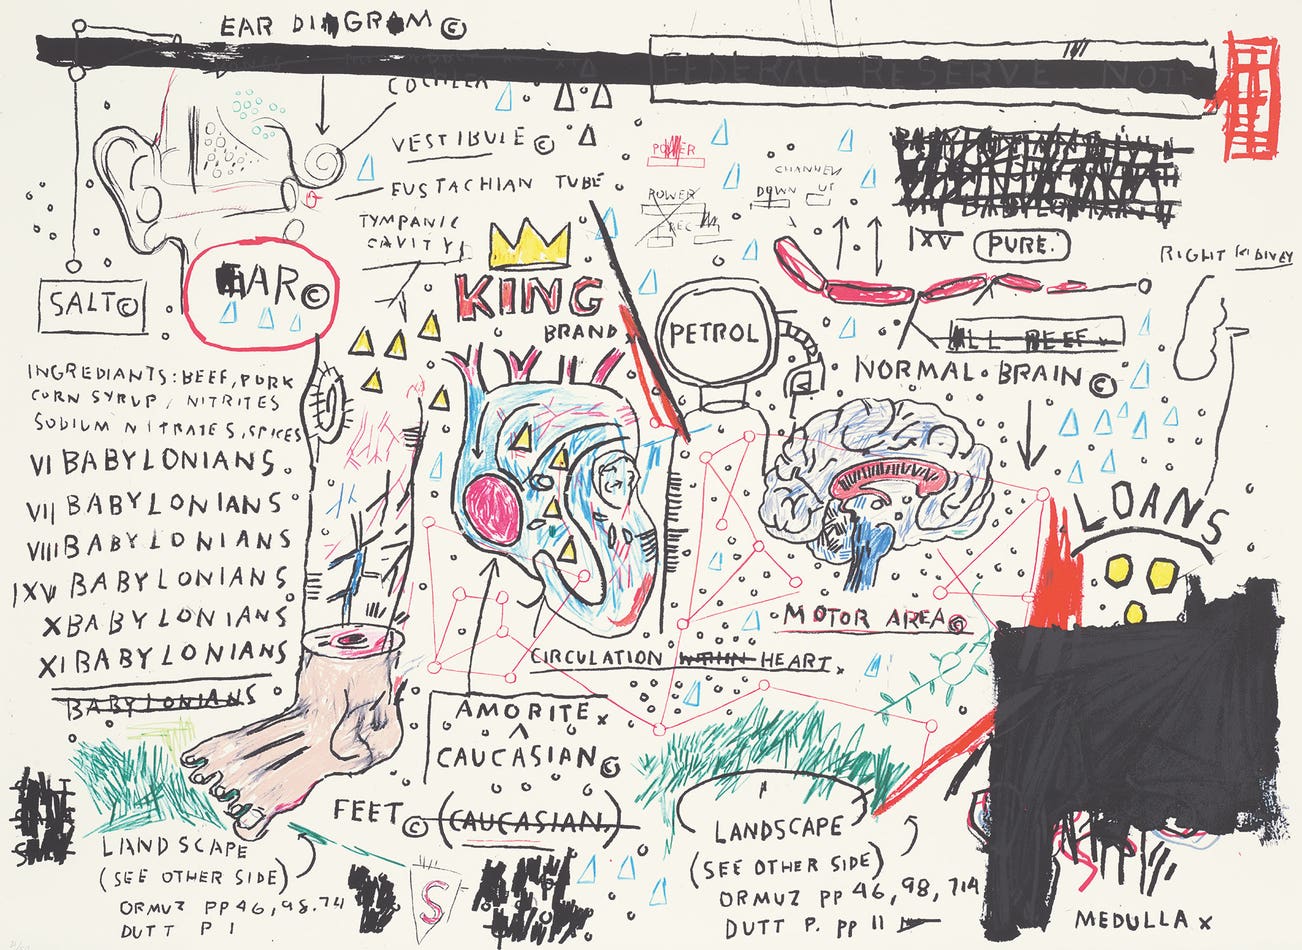 EAR DIAGRAM ©
FEDERAL RESERVE NOTE
COCHLEA
VESTIBULE ©
EUSTACHIAN TUBE
TYMPANIC
CAVITY
POWER
POWER
REC
CHANNEL
DOWN UP
IXV PURE.
RIGHT KIDNEY
SALT©
EAR©
KING
BRAND
PETROL
ALL BEEF
NORMAL BRAIN©
INGREDIANTS: BEEF, PORK
CORN SYRUP, NITRITES
SODIUM NITRATES, SPICES
VI BABYLONIANS.
VII BABYLONIANS
VIII BABYLONIANS
IXV BABYLONIANS
X BABYLONIANS
XI BABYLONIANS
BABYLONIANS
LOANS
MOTOR AREA©
CIRCULATION WITHIN HEART x
AMORITE x
CAUCASIAN©
FEET© (CAUCASIAN.)
LANDSCAPE
(SEE OTHER SIDE)
ORMUZ PP 46, 98. 74
DUTT P 1
S
LANDSCAPE
(SEE OTHER SIDE)
ORMUZ pp 46, 98, 714
DUTT P. pp 11
MEDULLA x